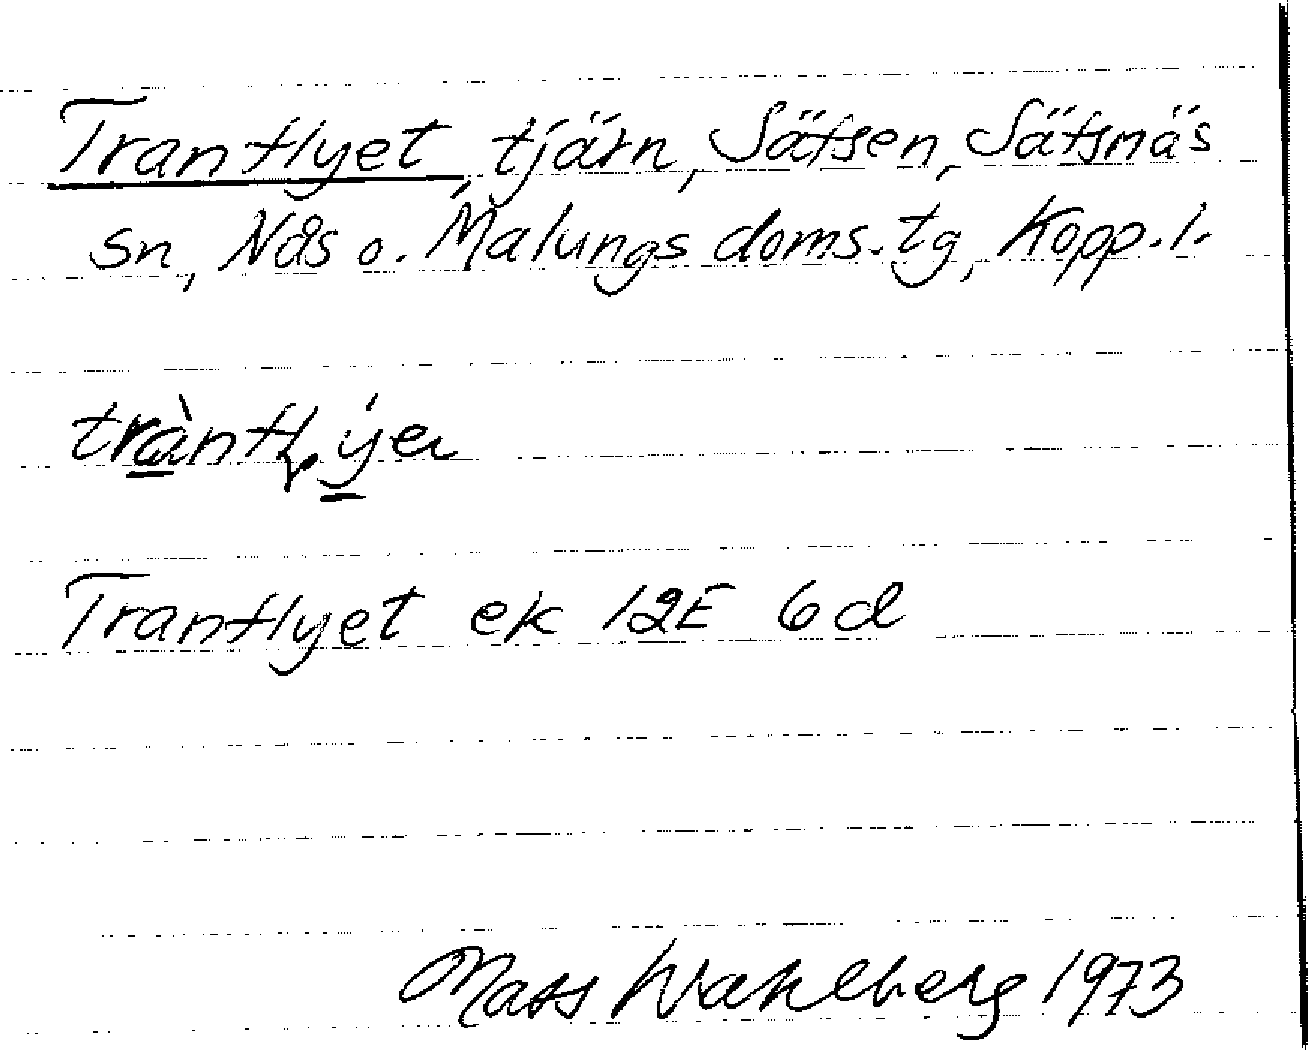 Tranflyet, tjärn, Säfsen, Säfsnäs
sn, Nås o. Malungs doms.tg, Kopp. l.
trànfl.ýeɹ
Tranflyet ek 12E 6d
Mats Wahlberg 1973